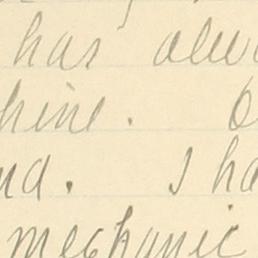 has
hine.
nd. I ha
mechanic